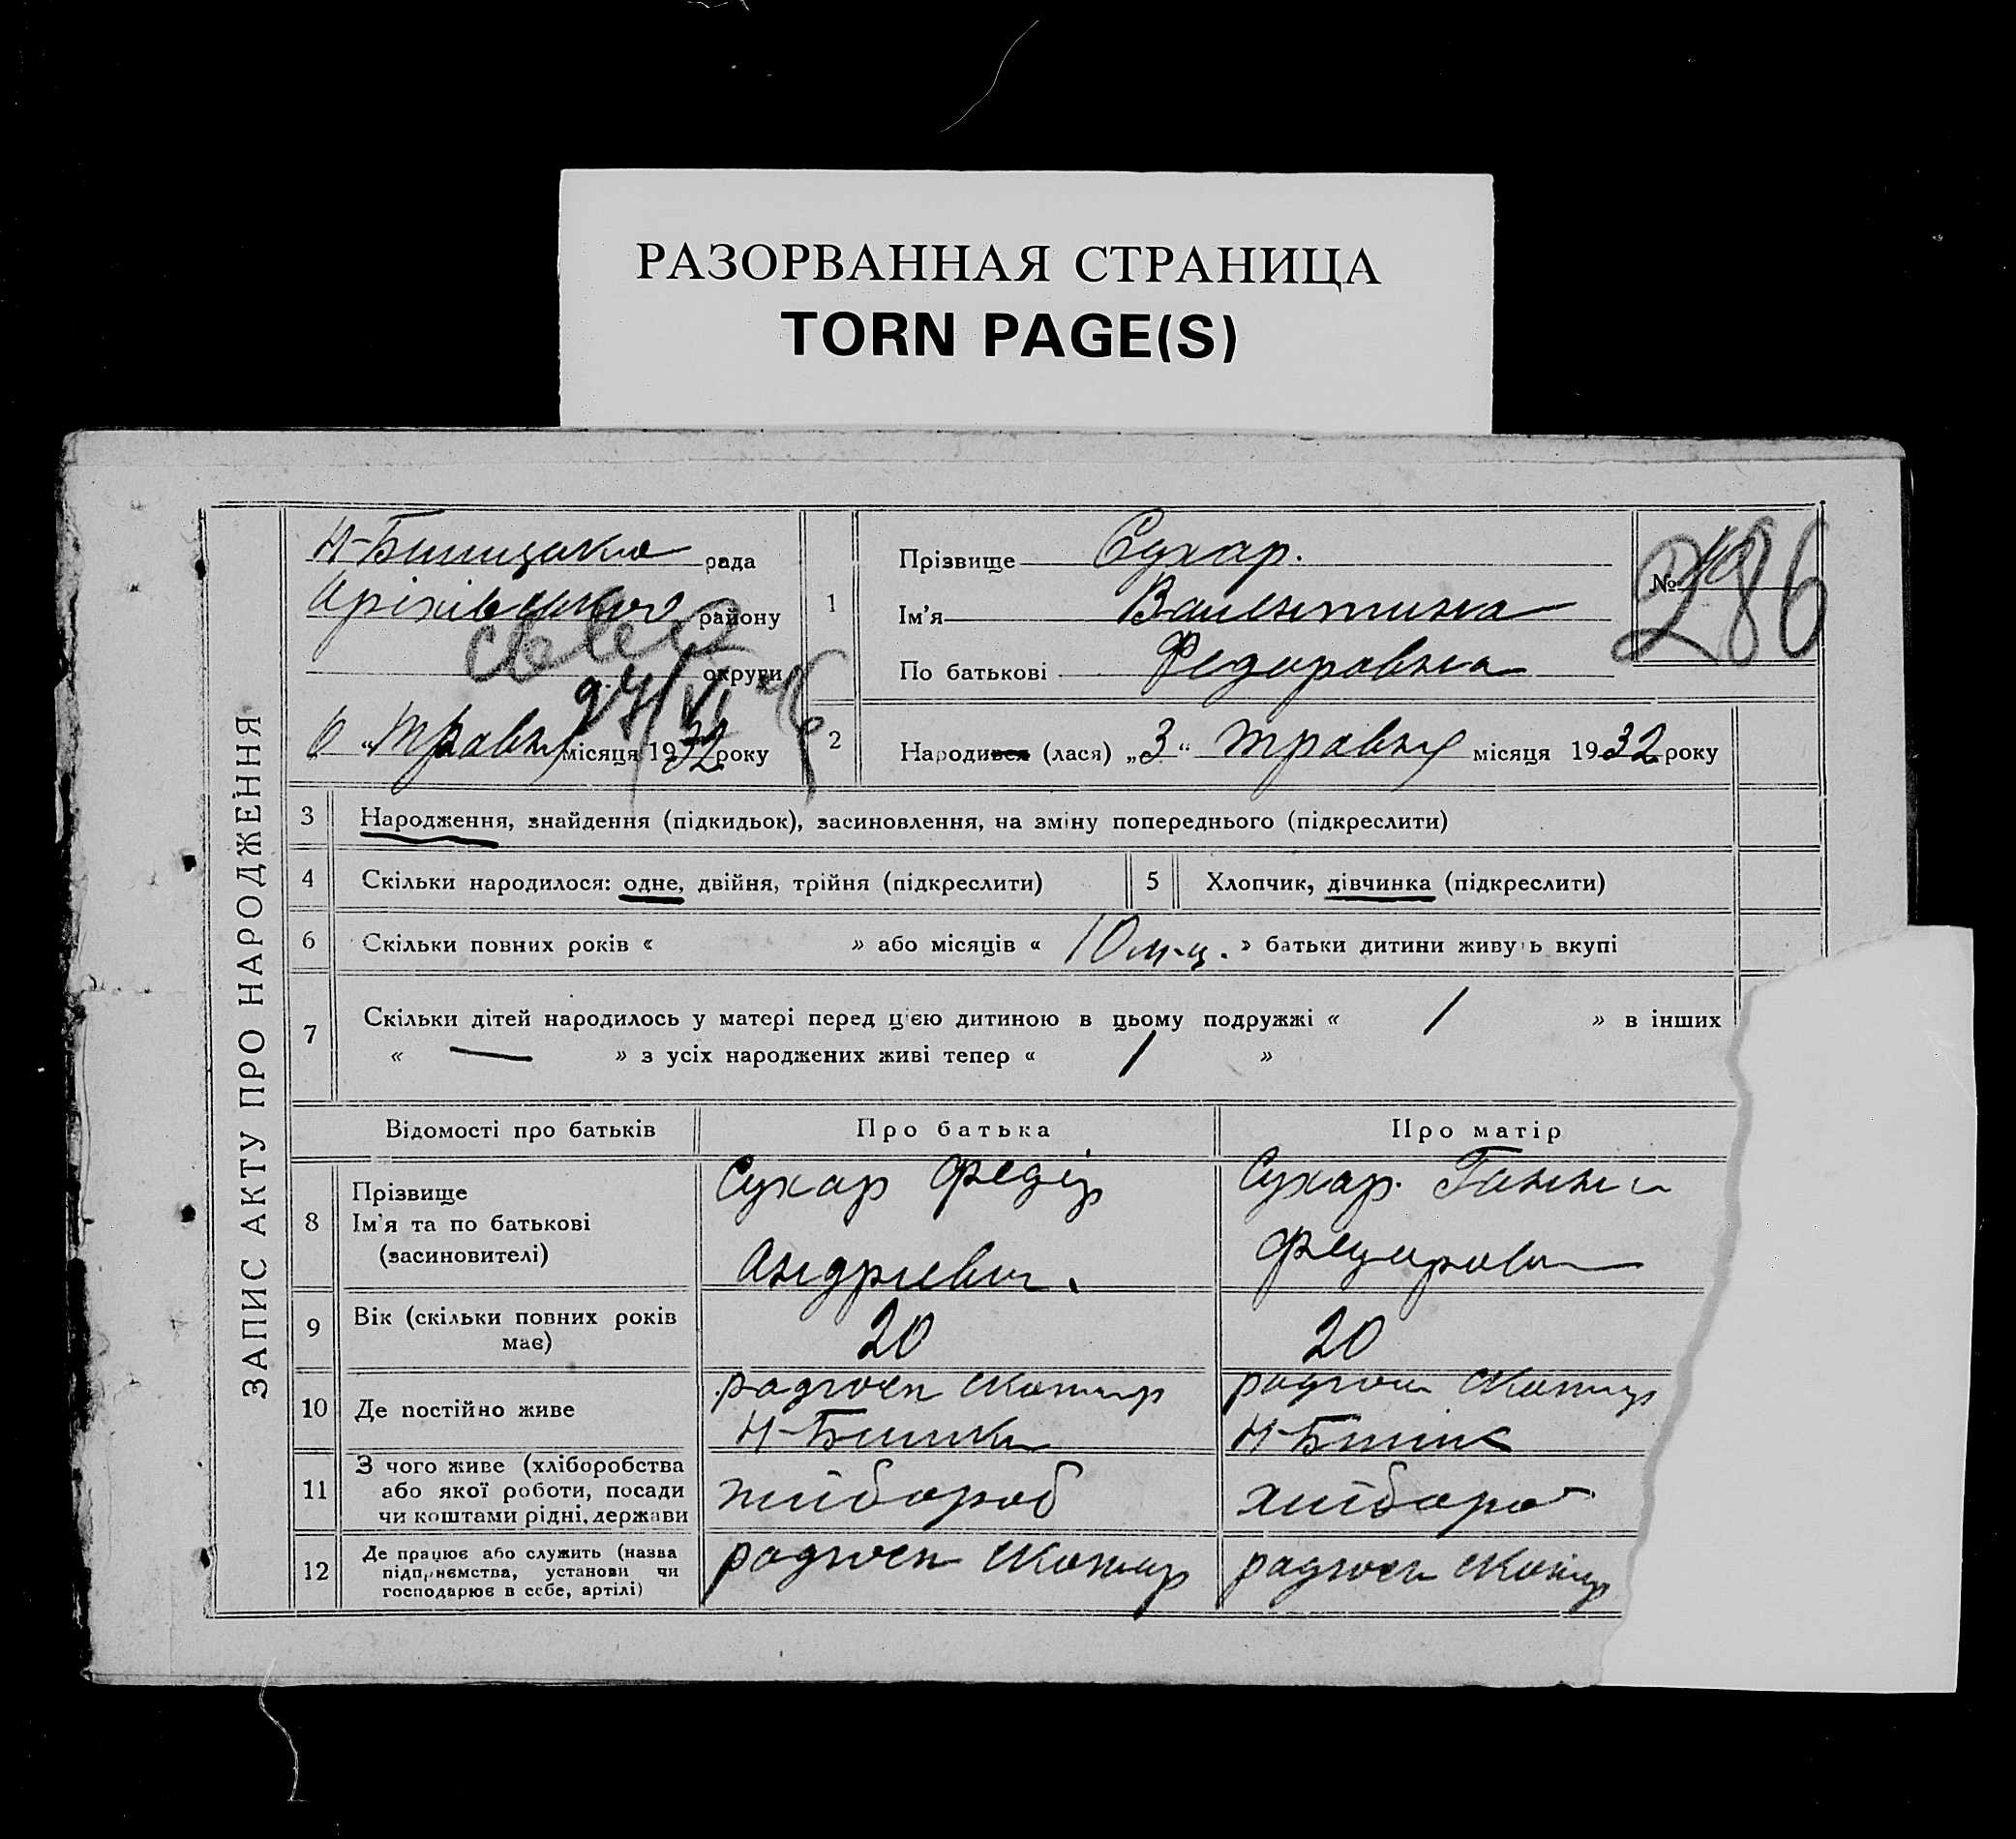 РАЗОРВАННАЯ СТРАНИЦА
TORN PAGE(S)
ЗАПИС АКТУ ПРО НАРОДЖЕННЯ
рада
району
округи
6 "травня місяця 1932 року
1
Прізвище Сухар.
Ім'я Валентина
По батькові Федоровна
№
286
2
Народився (лася) „3“ травня місяця 1932 року
3 Народження, знайдення (підкидьок), засиновлення, на зміну попереднього (підкреслити)
4 Скільки народилося: одне, двійня, трійня (підкреслити)
5 Хлопчик, дівчинка (підкреслити)
6 Скільки повних років « » або місяців « 10 м-ц. » батьки дитини живуть вкупі
7 Скільки дітей народилось у матері перед цією дитиною в цьому подружжі « 1 » в інших
« — » з усіх народжених живі тепер « 1 »
Відомості про батьків
Про батька
Про матір
8 Прізвище
Ім'я та по батькові
(засиновителі)
Сухар Федір
Андриевич.
Сухар. Ганна
9 Вік (скільки повних років
має)
20
20
10 Де постійно живе
радгосп
радгосп
11 З чого живе (хліборобства
або якої роботи, посади
чи коштами рідні, держави
хлібороб
хлібороб
12 Де працює або служить (назва
підприємства, установи чи
господарює в себе, артілі)
радгосп
радгосп